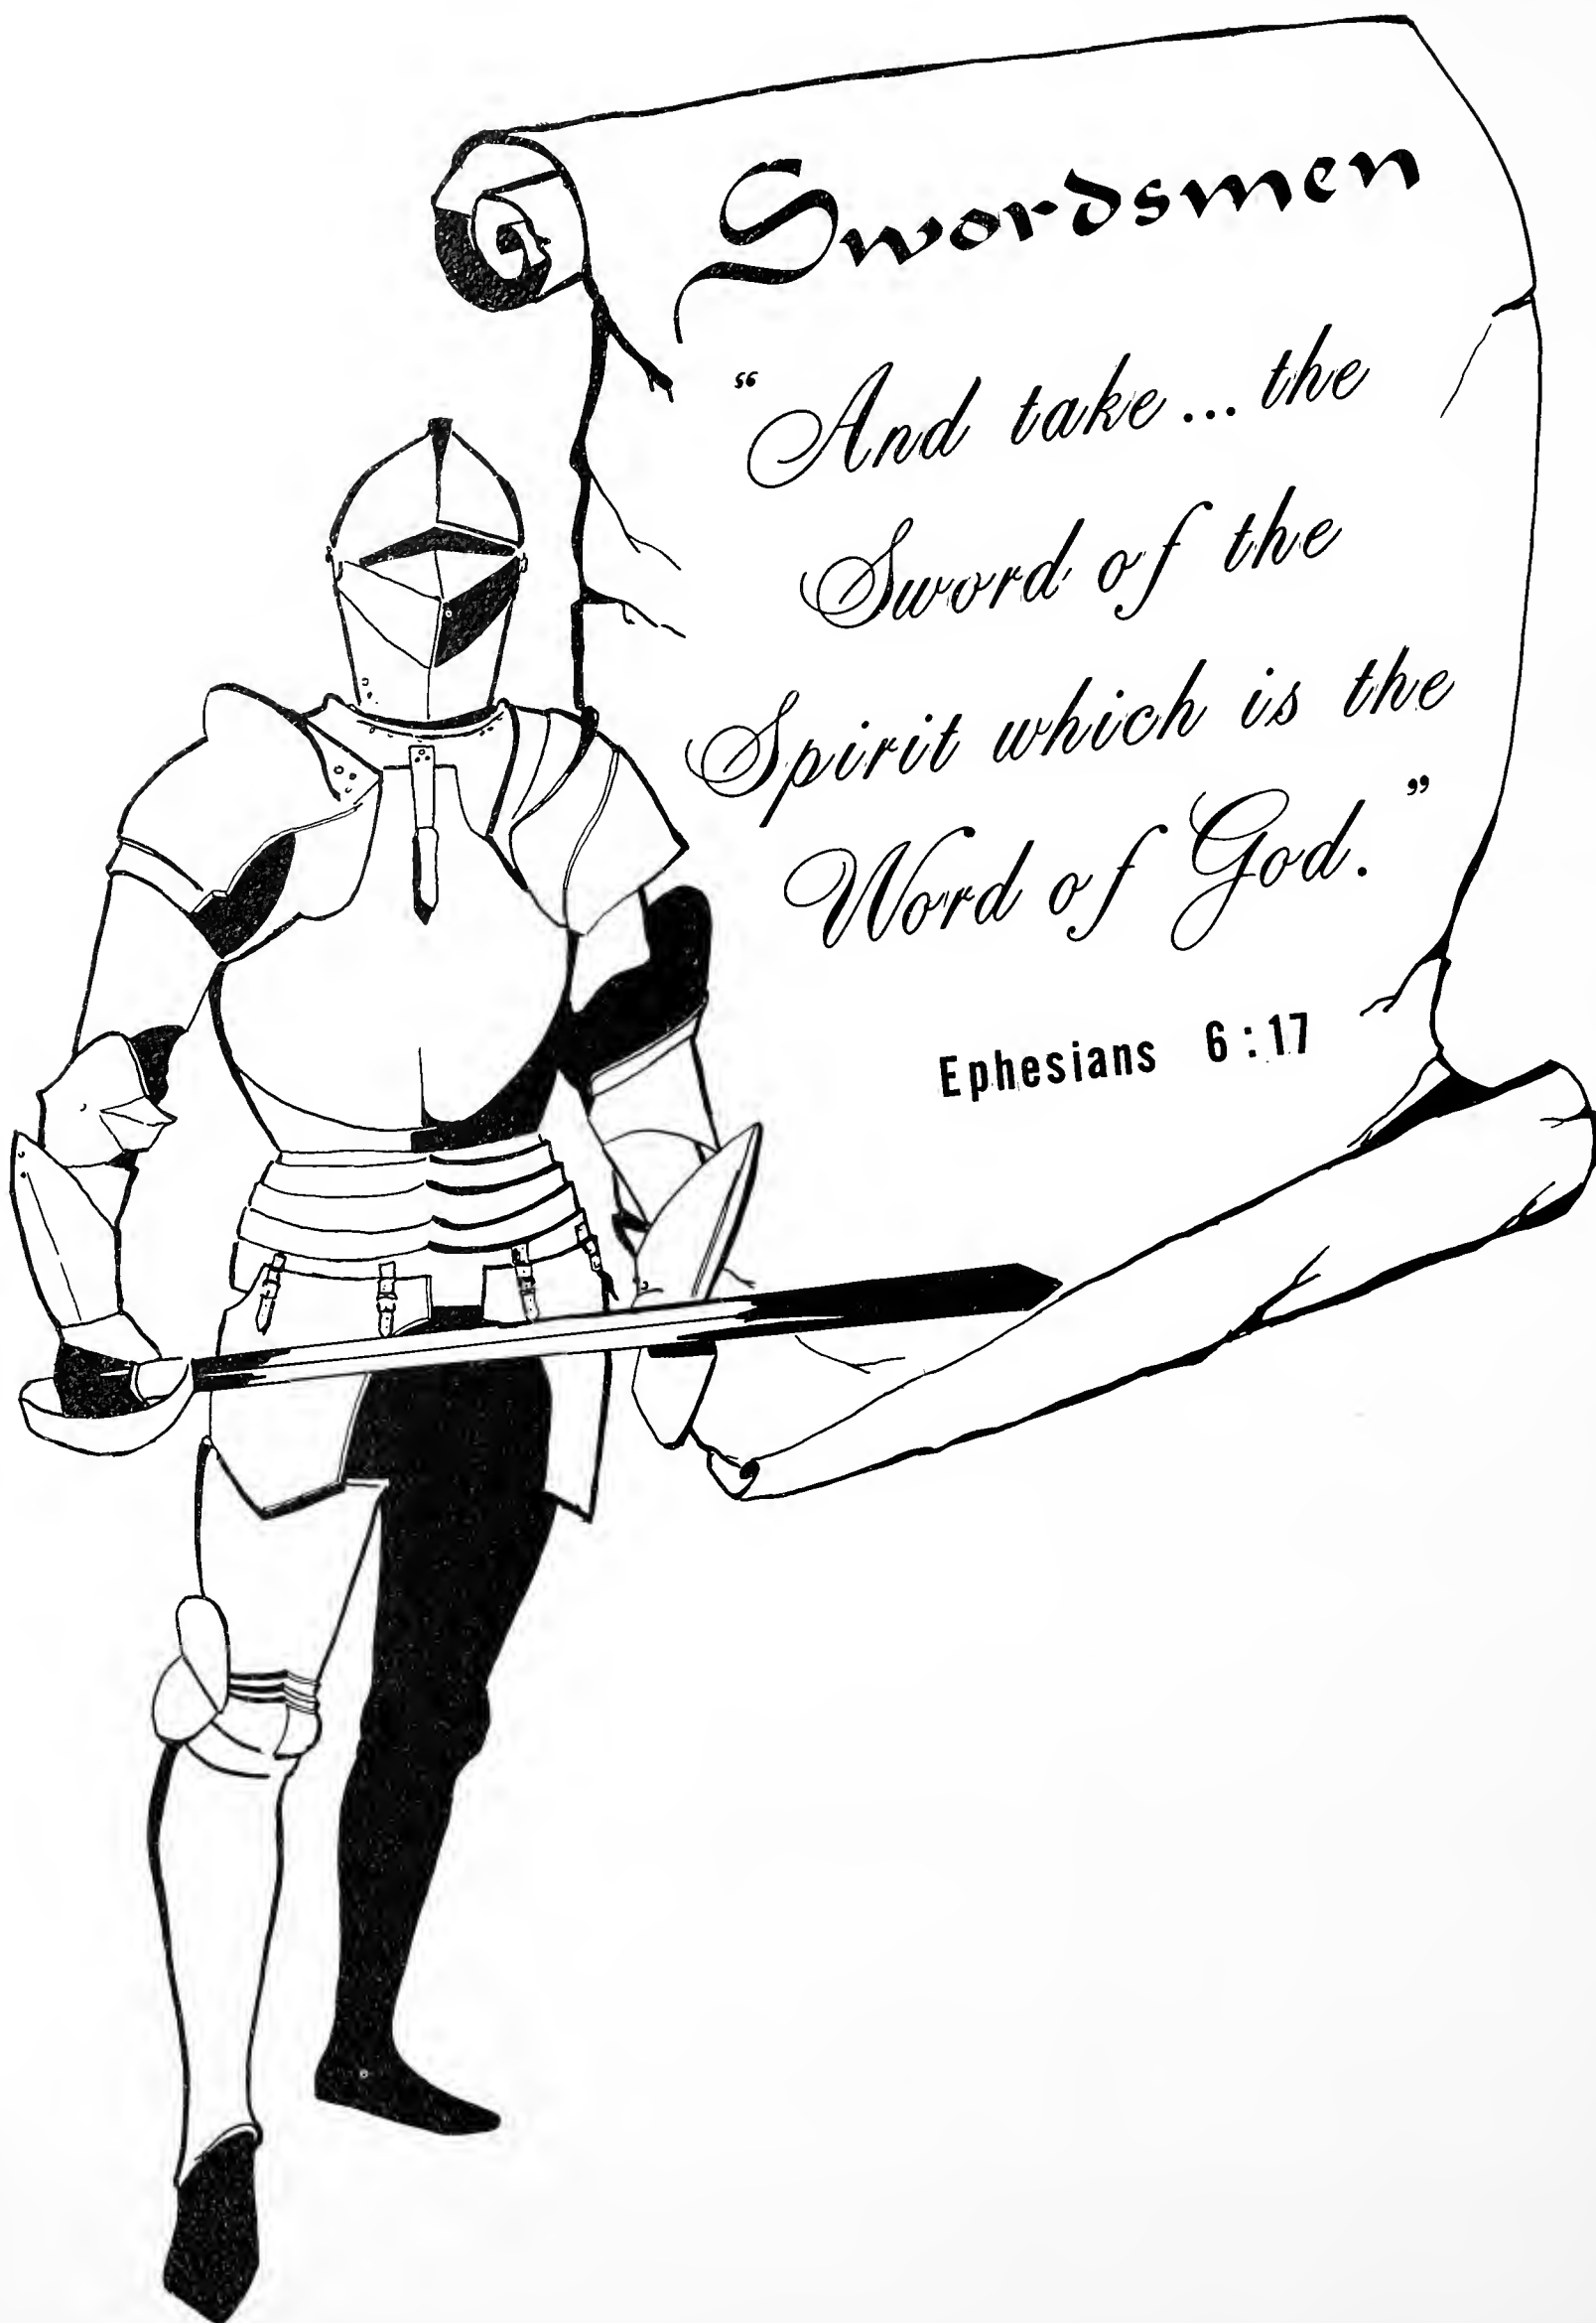 Swordsmen
“And take... the
Sword of the
Spirit which is the
Word of God.”
Ephesians 6:17